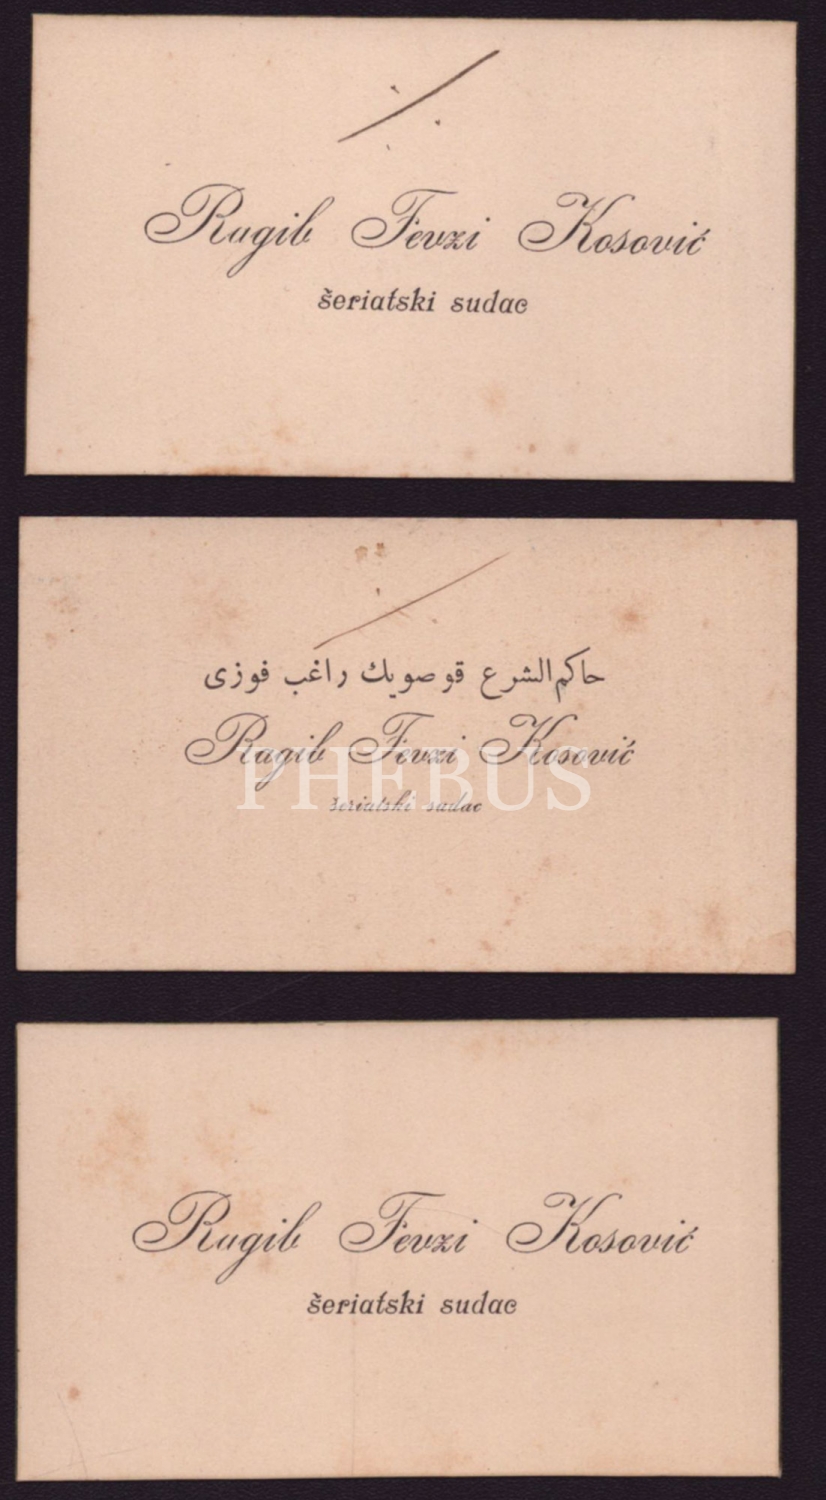 Ragib Fevzi Kosović
šeriatski sudac
حاكم الشرع قوصويك راغب فوزى
Ragib Fevzi Kosović
šeriatski sudac
PHEBUS
Ragib Fevzi Kosović
šeriatski sudac